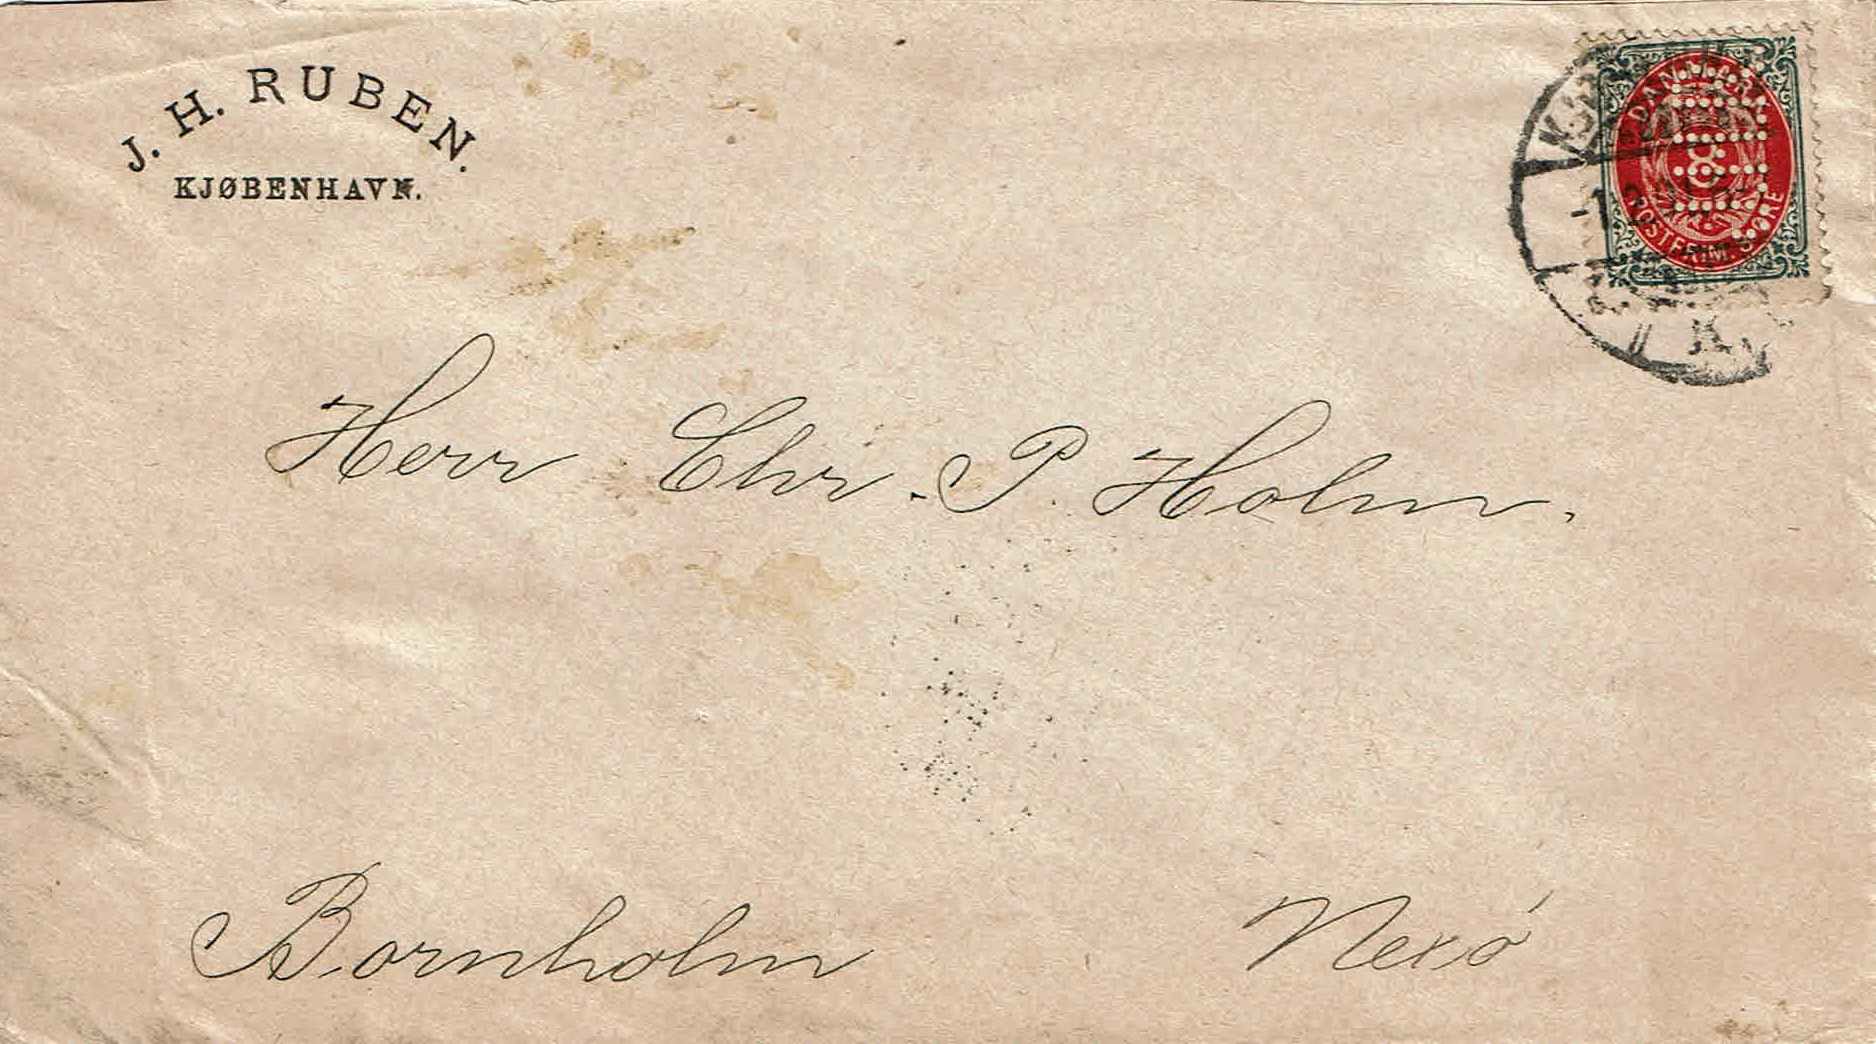 J. H. RUBEN.
KJØBENHAVN.
DANMARK
8
POSTFRIM. 8 ØRE
K
Herr Chr. P. Holm.
Bornholm Nexø